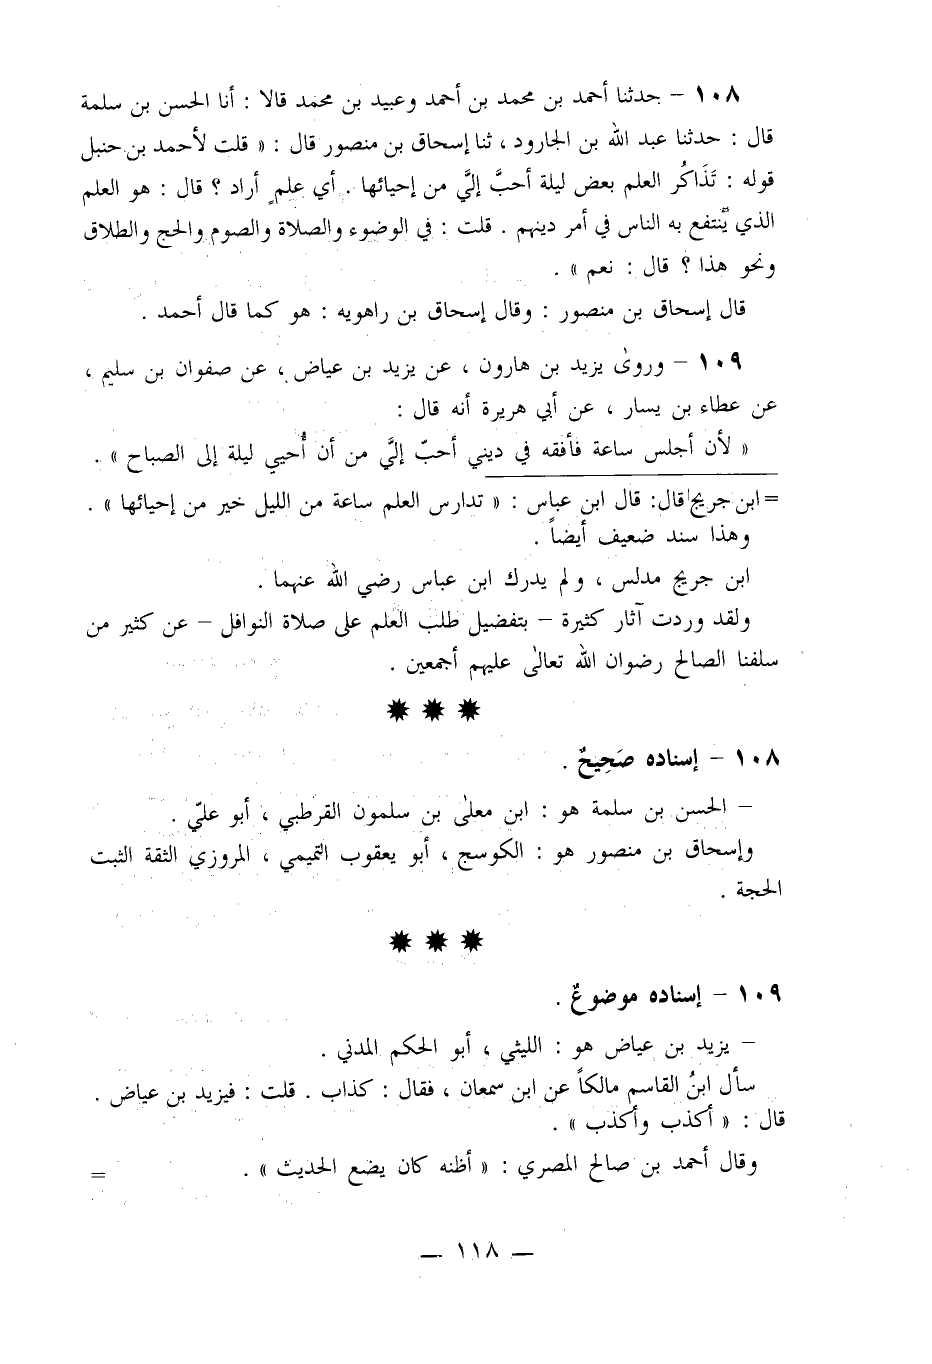 ١٠٨ – حدثنا أحمد بن محمد بن أحمد وعبيد بن محمد قالا : أنا الحسن بن سلمة
قال : حدثنا عبد الله بن الجارود ، ثنا إسحاق بن منصور قال : « قلت لأحمد بن حنبل
قوله : تَذَاكُر العلم بعض ليلة أحبَّ إليَّ من إحيائها . أي علمٍ أراد ؟ قال : هو العلم
الذي يّنتفع به الناس في أمر دينهم . قلت : في الوضوء والصلاة والصوم والحج والطلاق
ونحو هذا ؟ قال : نعم » .
قال إسحاق بن منصور : وقال إسحاق بن راهويه : هو كما قال أحمد .
١٠٩ – وروىٰ يزيد بن هارون ، عن يزيد بن عياض ، عن صفوان بن سليم ،
عن عطاء بن يسار ، عن أبي هريرة أنه قال :
« لأن أجلس ساعة فأفقه في ديني أحبّ إليَّ من أن أُحيي ليلة إلى الصباح » .
= ابن جريج قال: قال ابن عباس : « تدارس العلم ساعة من الليل خير من إحيائها » .
وهذا سند ضعيف أيضاً .
ابن جريج مدلس ، ولم يدرك ابن عباس رضي الله عنهما .
ولقد وردت آثار كثيرة – بتفضيل طلب العلم على صلاة النوافل – عن كثير من
سلفنا الصالح رضوان الله تعالىٰ عليهم أجمعين .
١٠٨ – إسناده صَحِيحٌ .
– الحسن بن سلمة هو : ابن معلىٰ بن سلمون القرطبي ، أبو عليّ .
وإسحاق بن منصور هو : الكوسج ، أبو يعقوب التميمي ، المروزي الثقة الثبت
الحجة .
١٠٩ – إسناده موضوعٌ .
– يزيد بن عياض هو : الليثي ، أبو الحكم المدني .
سأل ابنُ القاسم مالكاً عن ابن سمعان ، فقال : كذاب . قلت : فيزيد بن عياض .
قال : « أكذب وأكذب » .
وقال أحمد بن صالح المصري : « أظنه كان يضع الحديث » . =
— ١١٨ —